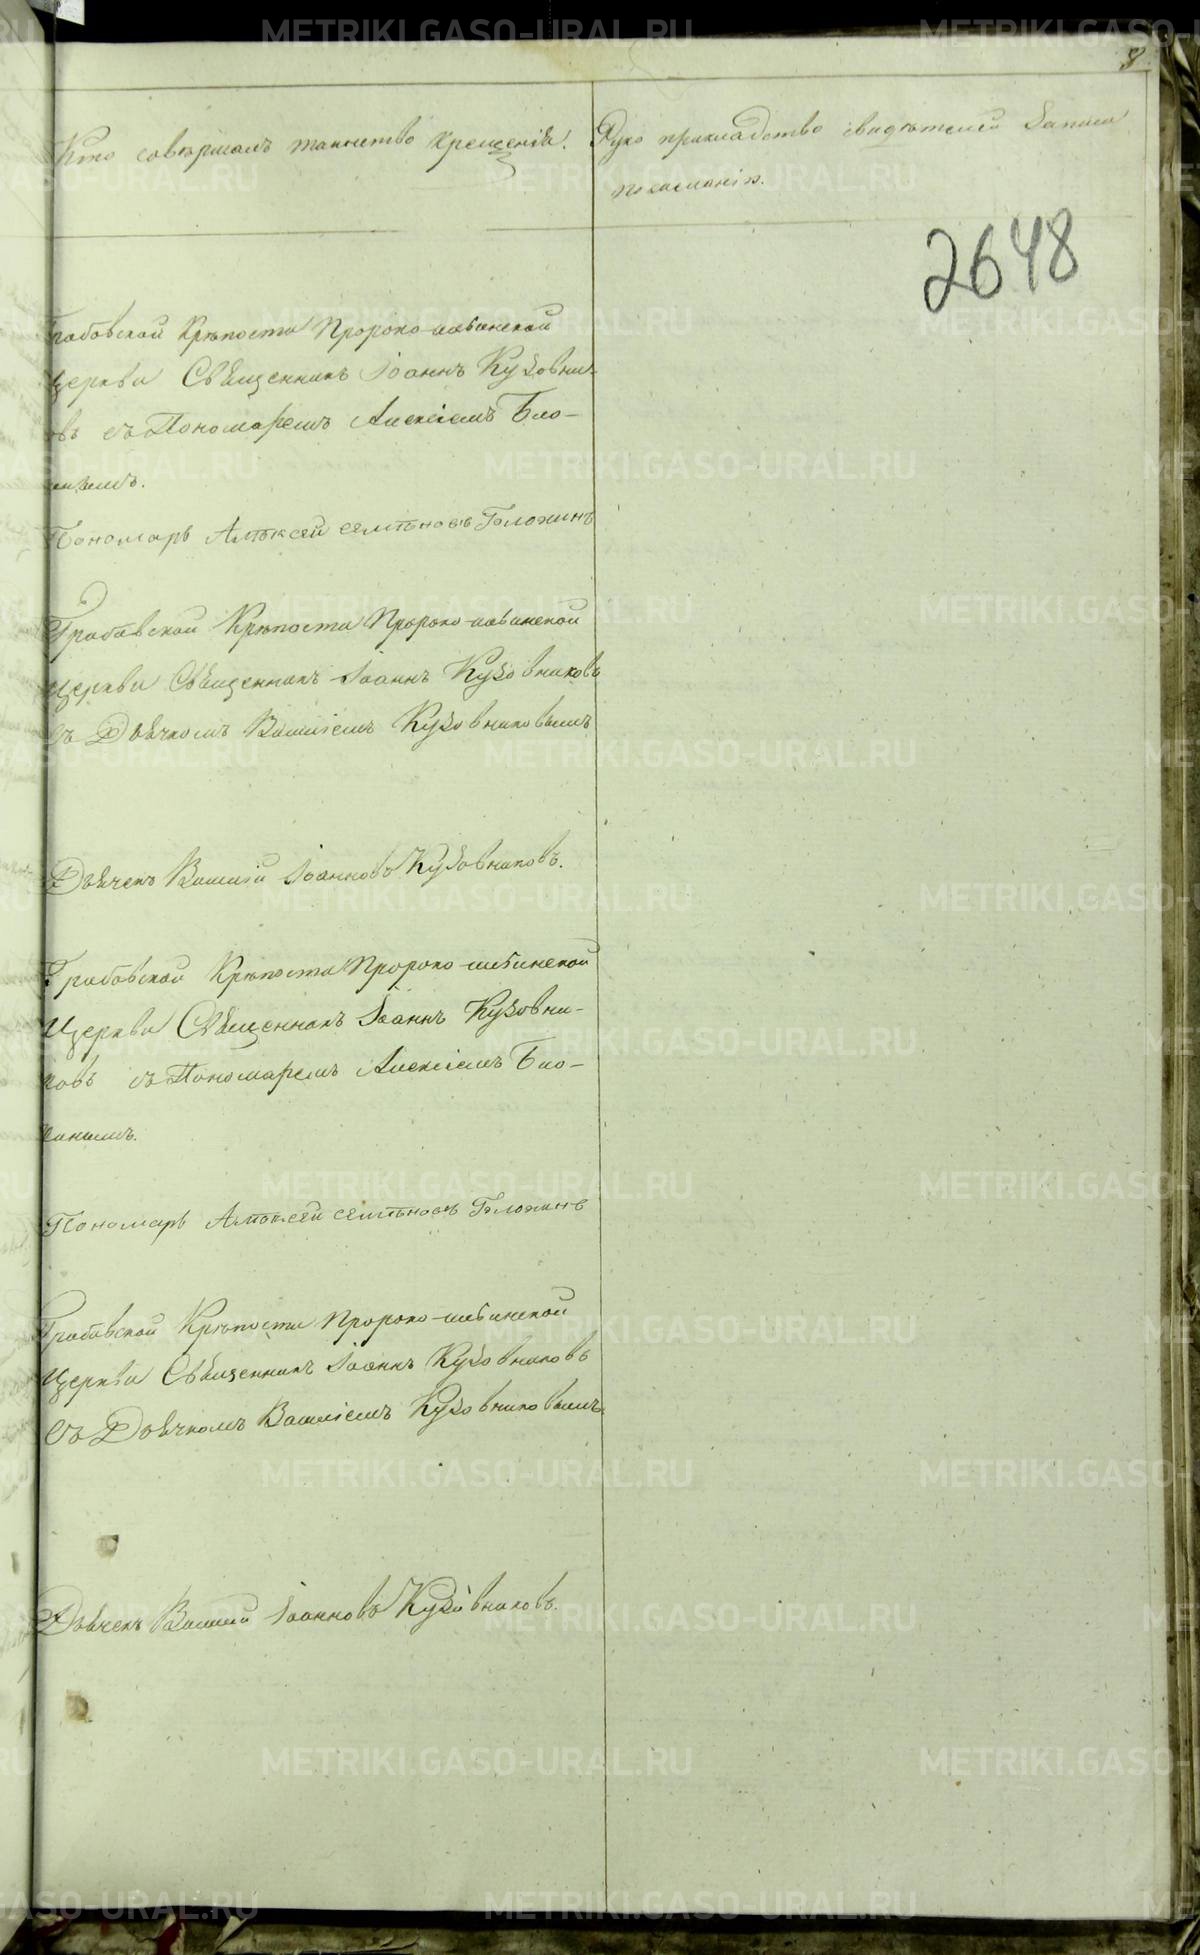 8
Кто совершалъ таинство крещенія.
Руко прикладство свидѣтелей записи
по желанію.
2648
Грабовской Крѣпости Пророко-ильинской
Церкви Священникъ Іоаннъ Кузовни-
овъ съ Пономаремъ Алексіемъ Бло-
Пономарь Алѣксей семѣновъ Блохинъ
Грабовской Крѣпости Пророко-ильинской
Церкви Священникъ Іоаннъ Кузовниковъ
Съ Дьячкомъ Василіемъ Кузовниковымъ
Дьячекъ Василій Іоанновъ Кузовниковъ.
Грабовской Крѣпости Пророко-ильинской
Церкви Священникъ Іоаннъ Кузовни-
ковъ съ Пономаремъ Алексіемъ Бло-
хинымъ.
Пономарь Алѣксей семѣновъ Блохинъ
Грабовской Крѣпости Пророко-ильинской
Церкви Священникъ Іоаннъ Кузовниковъ
Съ Дьячкомъ Василіемъ Кузовниковымъ.
Дьячекъ Василий Іоанновъ Кузовниковъ.
METRIKI.GASO-URAL.RU